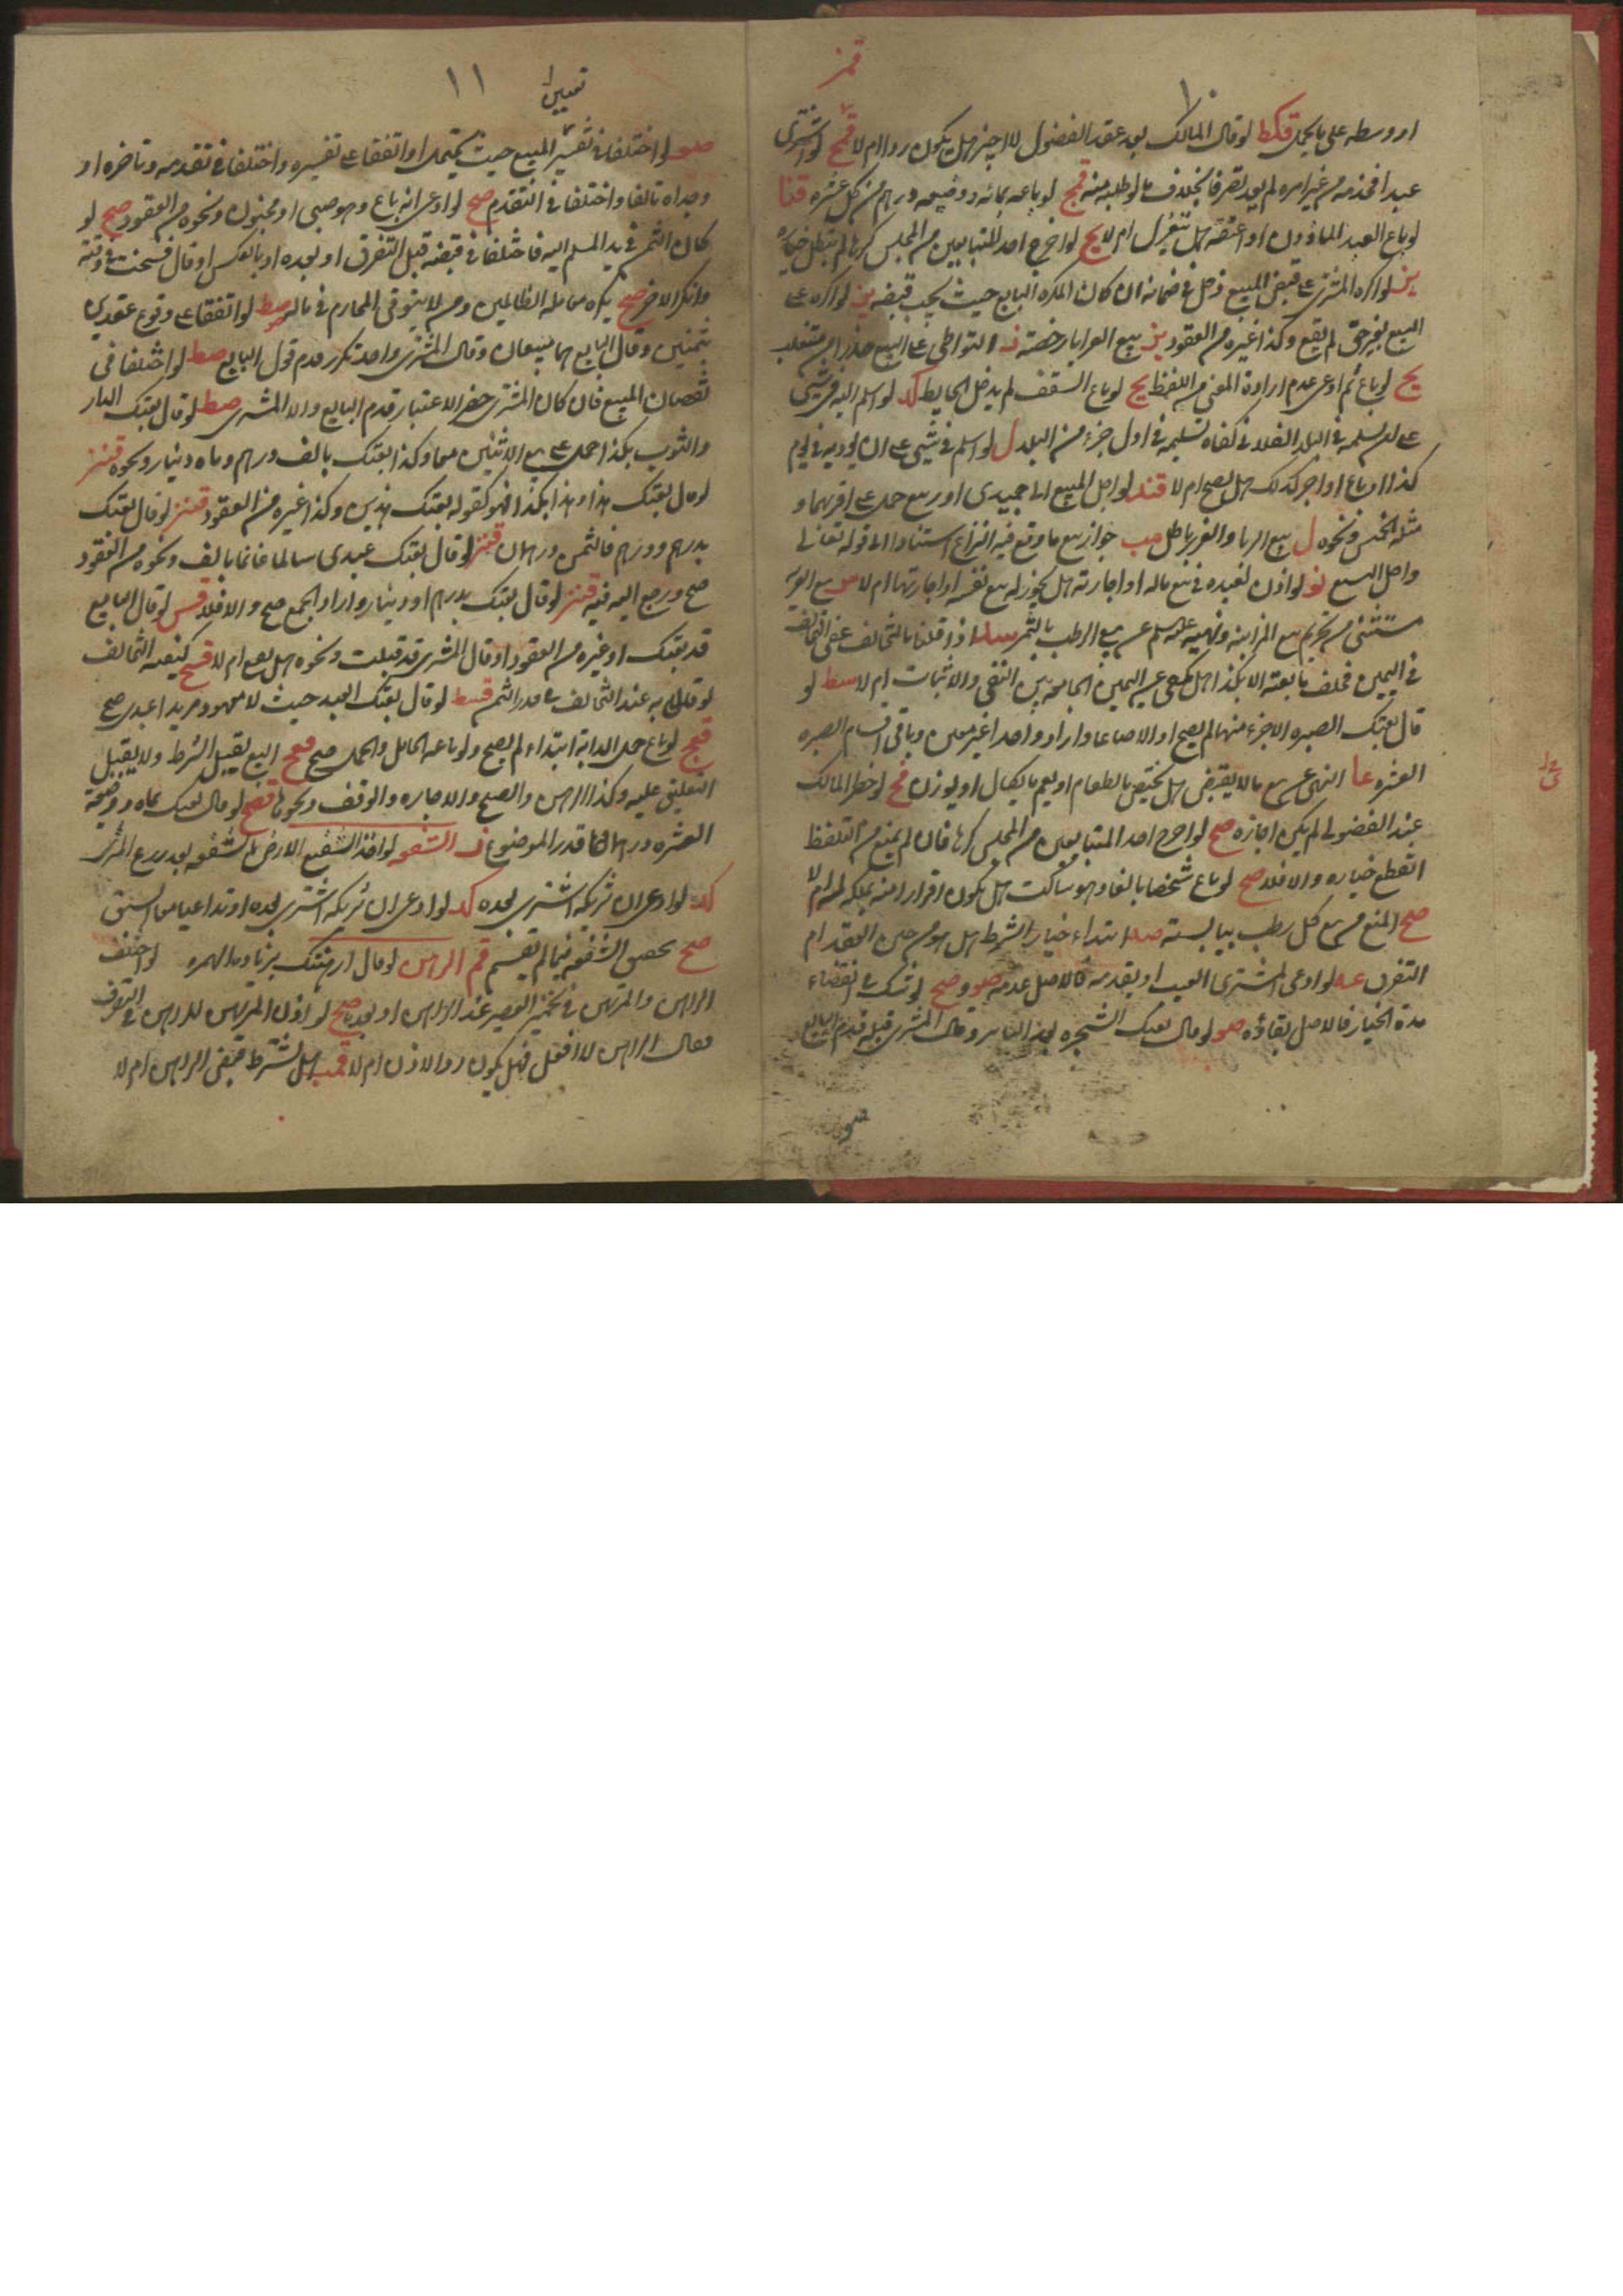 ١٠
او وسطه على ما يحمل قكط لو قال المالك بعد عقد الفضولى لا اجيز هل يكون ردا ام لا قمح لو اشترى
عبدا فخدمه من غير امره لم يعد تصرفا بخلاف ما لو طلبه منه قمح لو باعه بمائه ووضيعه درهم من كل عشره قنا
لو باع العبد الماذون او اعتقه هل ينعزل ام لا يح لو اخرج احد المتبايعين من المجلس كرها لم يبطل خياره
ين لو اكره المشترى على قبض المبيع دخل فى ضمانه ان كان المكره البايع حيث يجب قبضه ين لو اكره على
البيع بغير حق لم يقع وكذا غيره من العقود ين بيع العرايا رخصة ف التواطى على البيع حذرا من متغلب
يح لو باع ثم ادعى عدم ارادة المعنى من اللفظ يح لو باع السقف لم يدخل الحايط كد لو اسلم اليه فى شيى
على ان يسلمه فى البلد الفلانى كفاه تسليمه فى اول جزء من البلد ل لو اسلم فى شيى على ان يوديه فى يوم
كذا او باع او اجر كذلك هل يصح ام لا قند لو اجل المبيع الى جميدى او ربيع حمل على اقربهما و
مثله الخمس ونحوه ل بيع الربا والغرر باطل مب جواز بيع ما وقع فيه النزاع استنادا الى قوله تعالى
واحل البيع نو لو اذن لعبده فى بيع ماله او اجارته هل يجوز له بيع نفسه او اجارتها ام لا بيع العرية
مستثنى من تحريم بيع المزابنة ونهيه علم عن بيع الرطب بالتمر اذا قلنا بالتحالف عند التخالف
فى اليمين فحلف ما بعته الا بكذا هل يكفى عن اليمين الجامعة بين النفى والاثبات ام لا سط لو
قال بعتك الصبره الا جزء منها لم يصح او الا صاعا واراد واحدا غير معين وباقى اقسام الصبره
العشره عا النهى عن بيع ما لا يقبض هل يختص بالطعام او يعم ما يكال او يوزن قح لو حضر المالك
عند الفضولى لم يكن اجازة صح لو اخرج احد المتبايعين من المجلس كرها فان لم يمنع من التلفظ
انقطع خياره والا فلا صح لو باع شخصا بالغا وهو ساكت هل يكون اقرارا منه بملكه له ام لا
صح المنع من بيع كل رطب بيابسه ابتداء خيار الشرط هل هو من حين العقد ام
التفرق عه لو ادعى المشترى العيب او تقدمه فالاصل عدمه صو وصح لو شك فى انقضاء
مدة الخيار فالاصل بقاؤه صو لو قال بعتك الشجره بعد التابير وقال المشترى قبله قدم البايع
صو
١١
صو لو اختلفا فى تفسير المبيع حيث يحتمل او اتفقا على تفسيره واختلفا فى تقدمه وتاخره او
وجداه تالفا واختلفا فى التقدم صح لو ادعى انه باع وهو صبى او مجنون ونحوه من العقود صح لو
كان الثمن فى يد المسلم اليه فاختلفا فى قبضه قبل التفرق او بعده او بالعكس او قال فسخت فى وقته
وانكر الاخر صح يكره معامله الظالمين ومن لا يتوقى المحارم فى ماله صط لو اتفقا على وقوع عقدين
بثمنين وقال البايع هما بيعان وقال المشترى واحد تكرر قدم قول البايع صط لو اختلفا فى
نقصان المبيع فان كان المشترى حضر الاعتبار قدم البايع والا المشترى صط لو قال بعتك الدار
والثوب بكذا حمل على بيع الاثنين معا وكذا بعتك بالف درهم وماه دينار ونحوه قنز
لو قال بعتك هذا وهذا بكذا فهو كقوله بعتك هذين وكذا غيره من العقود قنز لو قال بعتك
بدرهم ودرهم فالثمن درهمان قنز لو قال بعتك عبدى سالما غانما بالف ونحوه من العقود
صح ورجع اليه فيه قنز لو قال بعتك بدرهم او دينار واراد الجمع صح والا فلا قس لو قال البايع
قد بعتك او غيره من العقود او قال المشترى قد قبلت ونحوه هل يصح ام لا قسح كيفيه التحالف
عند التحالف على قدر الثمن قسط لو قال بعتك العبد حيث لا معهود مريدا عبدى صح
قعح لو باع حمل الدابة ابتداء لم يصح ولو باعه الحامل والحمل صح قعح البيع يقبل الشرط ولا يقبل
التعليق عليه وكذا الرهن والصلح والاجاره والوقف ونحوها قصح لو قال بعتك بماه ووضيعة
العشره درهما قدر الموضوع ف الشفعه لو اخذ الشفيع الارض بالشفعه بعد زرع المشترى
كد لو ادعى ان شريكه اشترى بعده كد لو ادعى ان شريكه اشترى بعده او تداعيا معا السبق
صح يختص الشفعه فيما لم يقسم قم الرهن لو قال ارهنتك لو اختلف
الراهن والمرتهن فى تخمير العصير عند الراهن او بعده صح لو اذن المرتهن للراهن فى التصرف
فقال الراهن لا افعل فهل يكون ردا للاذن ام لا قمب هل يشترط قبض الراهن ام لا